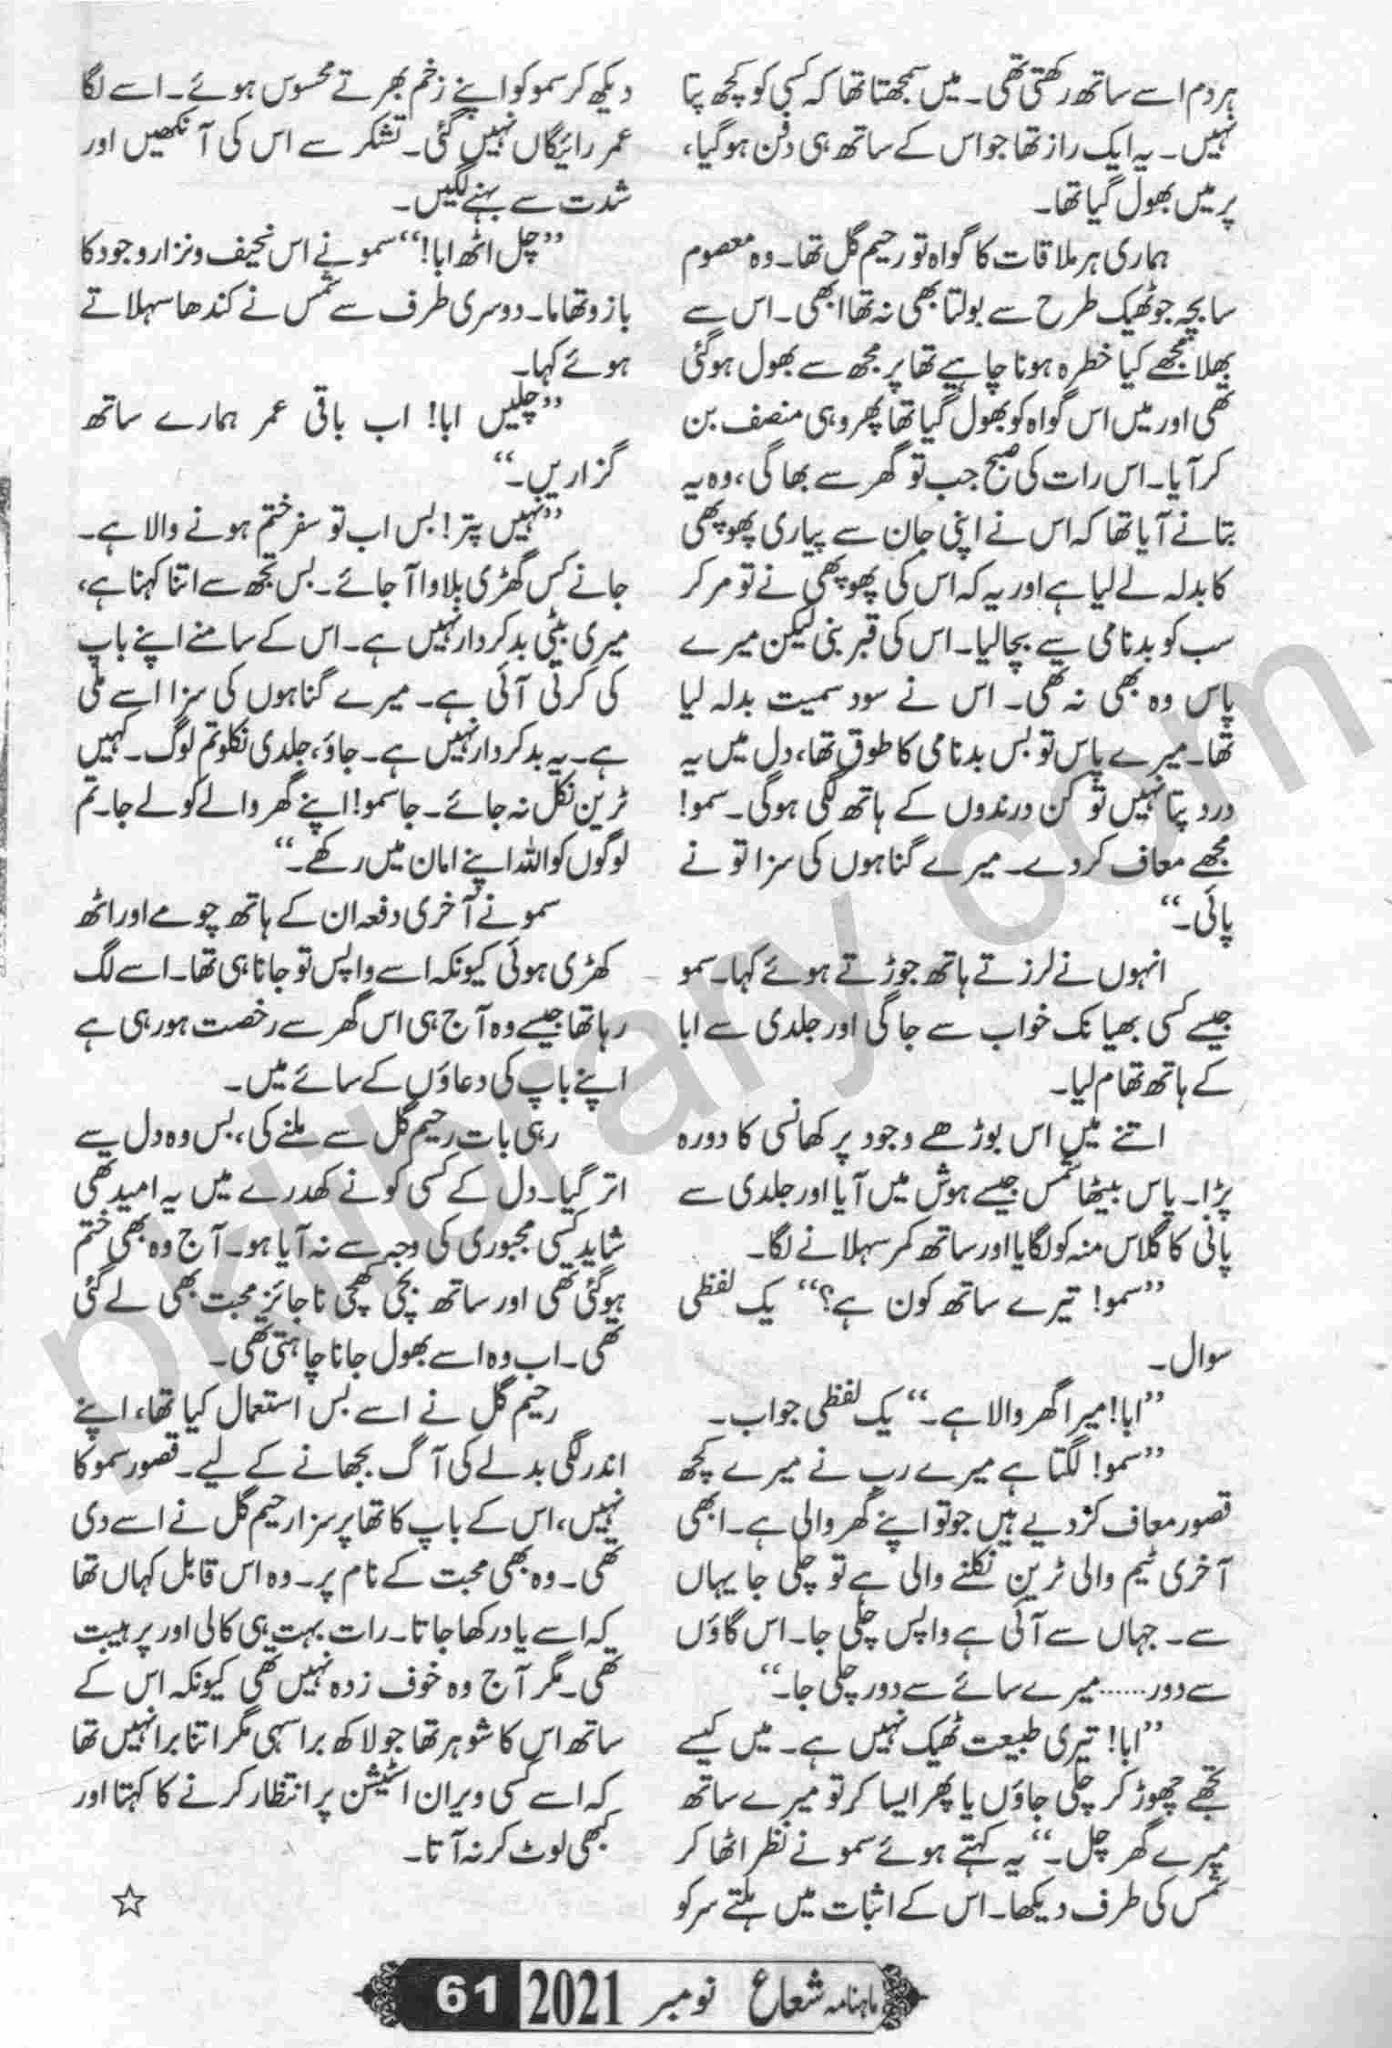 ہر دم اسے ساتھ رکھتی تھی۔ میں سمجھتا تھا کہ کسی کو کچھ پتا
نہیں۔ یہ ایک راز تھا جو اس کے ساتھ ہی دفن ہو گیا،
پر میں بھول گیا تھا۔
ہماری ہر ملاقات کا گواہ تو رحیم گل تھا۔ وہ معصوم
سا بچہ جو ٹھیک طرح سے بولتا بھی نہ تھا ابھی۔ اس سے
بھلا مجھے کیا خطرہ ہونا چاہیے تھا پر مجھ سے بھول ہو گئی
تھی اور میں اس گواہ کو بھول گیا تھا پھر وہی منصف بن
کر آیا۔ اس رات کی صبح جب تو گھر سے بھاگی، وہ یہ
بتانے آیا تھا کہ اس نے اپنی جان سے پیاری پھوپھی
کا بدلہ لے لیا ہے اور یہ کہ اس کی پھوپھی نے تو مر کر
سب کو بدنامی سے بچا لیا۔ اس کی قبر بنی لیکن میرے
پاس وہ بھی نہ تھی۔ اس نے سود سمیت بدلہ لیا
تھا۔ میرے پاس تو بس بدنامی کا طوق تھا، دل میں یہ
درد پتا نہیں تو کن درندوں کے ہاتھ لگی ہو گی۔ سمو!
مجھے معاف کر دے۔ میرے گناہوں کی سزا تو نے
پائی۔“
انہوں نے لرزتے ہاتھ جوڑتے ہوئے کہا۔ سمو
جیسے کسی بھیانک خواب سے جاگی اور جلدی سے ابا
کے ہاتھ تھام لیا۔
اتنے میں اس بوڑھے وجود پر کھانسی کا دورہ
پڑا۔ پاس بیٹھا شمس جیسے ہوش میں آیا اور جلدی سے
پانی کا گلاس منہ کو لگایا اور ساتھ کمر سہلانے لگا۔
”سمو! تیرے ساتھ کون ہے؟“ یک لفظی
سوال۔
”ابا! میرا گھر والا ہے۔“ یک لفظی جواب۔
”سمو! لگتا ہے میرے رب نے میرے کچھ
قصور معاف کر دیے ہیں جو تو اپنے گھر والی ہے۔ ابھی
آخری ٹیم والی ٹرین نکلنے والی ہے تو چلی جا یہاں
سے۔ جہاں سے آئی ہے واپس چلی جا۔ اس گاؤں
سے دور...... میرے سائے سے دور چلی جا۔“
”ابا! تیری طبیعت ٹھیک نہیں ہے۔ میں کیسے
تجھے چھوڑ کر چلی جاؤں یا پھر ایسا کر تو میرے ساتھ
میرے گھر چل۔“ یہ کہتے ہوئے سمو نے نظر اٹھا کر
شمس کی طرف دیکھا۔ اس کے اثبات میں ہلتے سر کو
دیکھ کر سمو کو اپنے زخم بھرتے محسوس ہوئے۔ اسے لگا
عمر رائیگاں نہیں گئی۔ تشکر سے اس کی آنکھیں اور
شدت سے بہنے لگیں۔
”چل اٹھ ابا!“ سمو نے اس نحیف و نزار وجود کا
بازو تھاما۔ دوسری طرف سے شمس نے کندھا سہلاتے
ہوئے کہا۔
”چلیں ابا! اب باقی عمر ہمارے ساتھ
گزاریں۔“
”نہیں پتر! بس اب تو سفر ختم ہونے والا ہے۔
جانے کس گھڑی بلاوا آ جائے۔ بس تجھ سے اتنا کہنا ہے،
میری بیٹی بدکردار نہیں ہے۔ اس کے سامنے اپنے باپ
کی کرتی آئی ہے۔ میرے گناہوں کی سزا اسے ملی
ہے۔ یہ بدکردار نہیں ہے۔ جاؤ، جلدی نکلو تم لوگ۔ کہیں
ٹرین نکل نہ جائے۔ جا سمو! اپنے گھر والے کو لے جا۔ تم
لوگوں کو اللہ اپنے امان میں رکھے۔“
سمو نے آخری دفعہ ان کے ہاتھ چومے اور اٹھ
کھڑی ہوئی کیونکہ اسے واپس تو جانا ہی تھا۔ اسے لگ
رہا تھا جیسے وہ آج ہی اس گھر سے رخصت ہو رہی ہے
اپنے باپ کی دعاؤں کے سائے میں۔
رہی بات رحیم گل سے ملنے کی، بس وہ دل سے
اتر گیا۔ دل کے کسی کونے کھدرے میں یہ امید تھی
شاید کسی مجبوری کی وجہ سے نہ آیا ہو۔ آج وہ بھی ختم
ہو گئی تھی اور ساتھ بچی کھچی ناجائز محبت بھی لے گئی
تھی۔ اب وہ اسے بھول جانا چاہتی تھی۔
رحیم گل نے اسے بس استعمال کیا تھا، اپنے
اندر لگی بدلے کی آگ بجھانے کے لیے۔ قصور سمو کا
نہیں، اس کے باپ کا تھا پر سزا رحیم گل نے اسے دی
تھی۔ وہ بھی محبت کے نام پر۔ وہ اس قابل کہاں تھا
کہ اسے یاد رکھا جاتا۔ رات بہت ہی کالی اور پر ہیبت
تھی۔ مگر آج وہ خوف زدہ نہیں تھی کیونکہ اس کے
ساتھ اس کا شوہر تھا جو لاکھ برا سہی مگر اتنا برا نہیں تھا
کہ اسے کسی ویران اسٹیشن پر انتظار کرنے کا کہتا اور
کبھی لوٹ کر نہ آتا۔
☆
ماہنامہ شعاع نومبر 2021 61
pklibrary.com